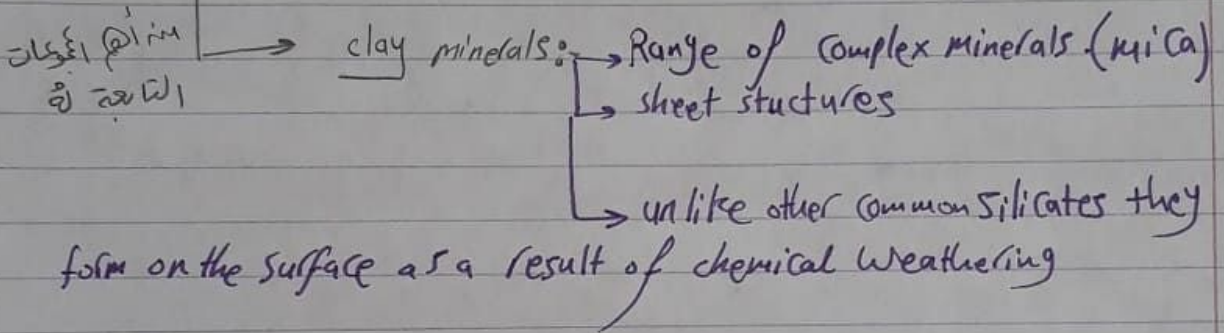 clay minerals: Range of Complex minerals (mica)
sheet stuctures
unlike other common silicates they
form on the surface as a result of chemical weathering